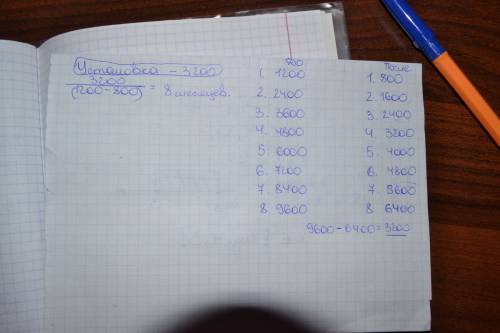 Установка – 3200
3200
(1200-800) = 8 месяцев.
До
1. 1200
2. 2400
3. 3600
4. 4800
5. 6000
6. 7200
7. 8400
8. 9600
После
1. 800
2. 1600
3. 2400
4. 3200
5. 4000
6. 4800
7. 5600
8. 6400
9600-6400=3200